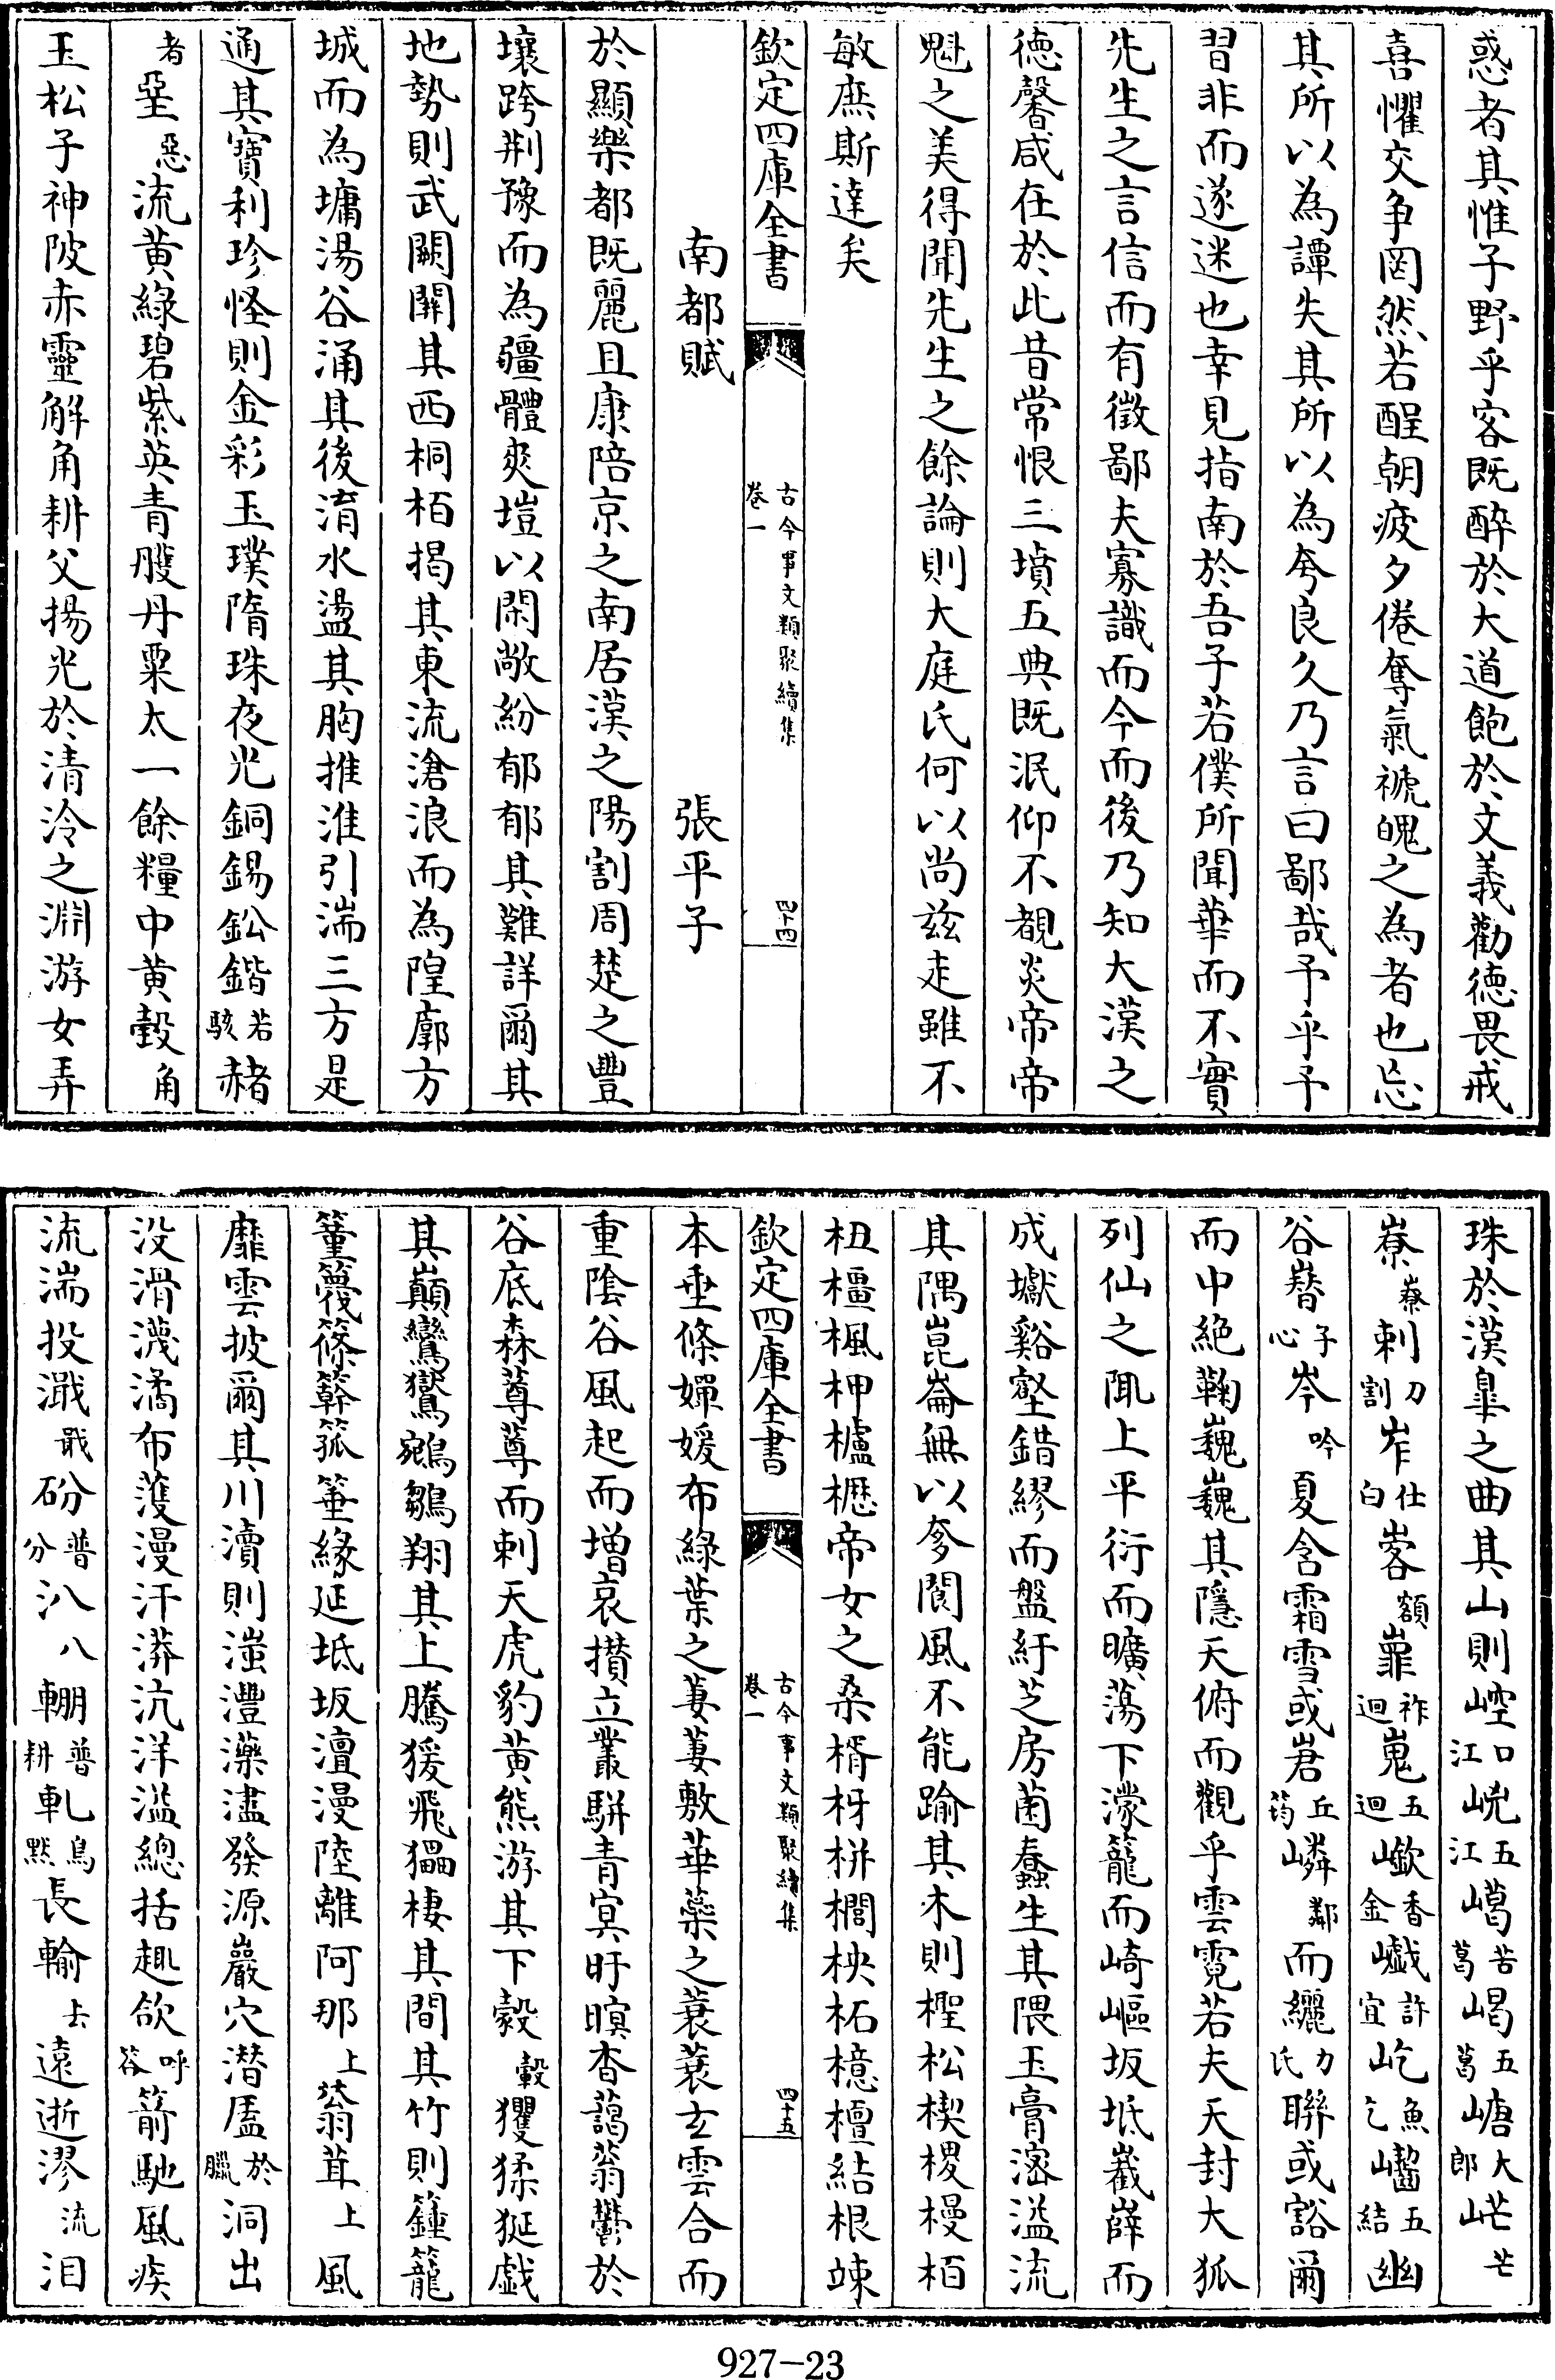 惑者其惟子野乎客既醉於大道飽於文義勸德畏戒
喜懼交争罔然若酲朝疲夕倦奪氣褫魄之為者也忘
其所以為譚失其所以為夸良久乃言曰鄙哉予乎予
習非而遂迷也幸見指南於吾子若僕所聞華而不實
先生之言信而有徵鄙夫寡識而今而後乃知大漢之
德馨咸在於此昔常恨三墳五典既泯仰不覩炎帝帝
魁之美得聞先生之餘論則大庭氏何以尚兹走雖不
敏庶斯達矣
欽定四庫全書 古今事文類聚續集 卷一 四十四
南都賦 張平子
於顯樂都既麗且康陪京之南居漢之陽割周楚之豐
壤跨荆豫而為疆體爽塏以閑敞紛郁郁其難詳爾其
地勢則武闕關其西桐栢揭其東流滄浪而為隍廓方
城而為墉湯谷涌其後淯水盪其胸推淮引湍三方是
通其寳利珍怪則金彩玉璞隋珠夜光銅錫鉛鍇若駭赭
者堊惡流黄緑碧紫英青雘丹粟太一餘糧中黄瑴角
玉松子神陂赤靈解角耕父揚光於清泠之淵游女弄
珠於漢臯之曲其山則崆口江㟅五江嵑苦葛㟍五葛嵣大郎㟐芒
嶚嶚剌刀割岝仕白㟯額嶵祚迴嵬五迴嶔香金巇許宜屹魚乞㘖五結幽
谷㬱子心岑吟夏含霜雪或峮丘筠嶙鄰而纚力氏聨或豁爾
而中絶鞠巍巍其隱天俯而觀乎雲霓若夫天封大狐
列仙之陬上平衍而曠蕩下濛籠而崎嶇坂坻嶻嶭而
成甗谿壑錯繆而盤紆芝房菌蠢生其隈玉膏滵溢流
其隅崑崙無以奓閬風不能踰其木則檉松楔㮨槾栢
杻橿楓柙櫨櫪帝女之桑楈枒栟櫚柍柘檍檀結根竦
欽定四庫全書 古今事文類聚續集 卷一 四十五
本垂條嬋媛布緑葉之萋萋敷華蘂之蓑蓑玄雲合而
重陰谷風起而増哀攢立叢駢青冥盱瞑杳藹蓊鬱於
谷底森䔿䔿而刺天虎豹黄熊游其下㺉㲄玃猱㹶戲
其巔鸞鸑鵷鶵翔其上騰猨飛蠝棲其間其竹則籦籠
䈽篾篠簳箛箠縁延坻坂澶漫陸離阿那上蓊茸上風
靡雲披爾其川瀆則滍灃濜發源巖穴潜㕎於臘洞出
没滑瀎潏布濩漫汗漭沆洋溢總括趣欱呼答箭馳風疾
流湍投濈戢砏普分汃八輣普耕軋烏黠長輸去遠逝漻流淚
927-23